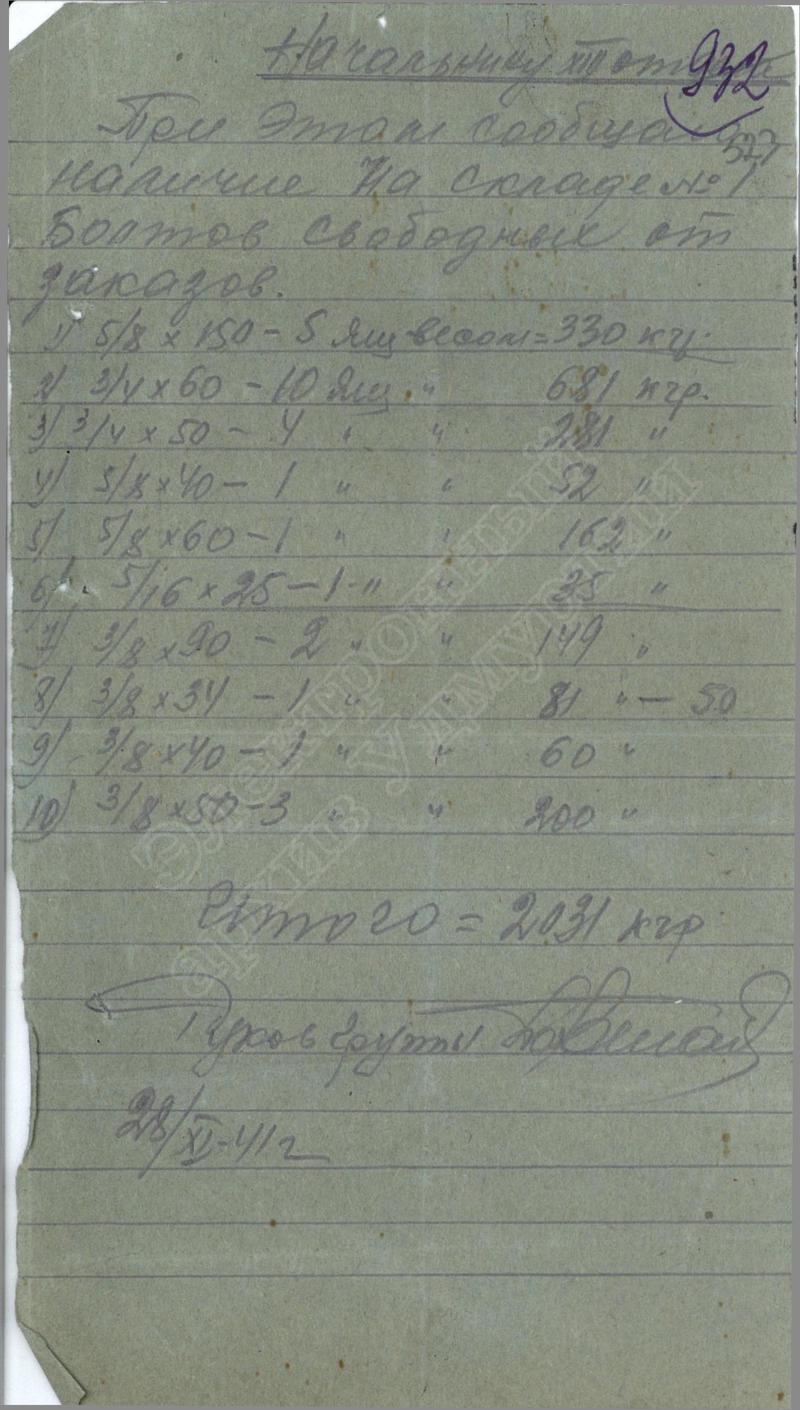 Начальнику XIII от
932
При Этом сообщаю
527
наличие На складе № 1
Болтов свободных от
заказов.
1) 5/8 х 150 – 5 ящ весом = 330 кг.
2) 3/4 х 60 – 10 ящ. " 681 кгр.
3) 3/4 х 50 – 4 " " 281 "
4) 5/8 х 40 – 1 " " 52 "
5) 5/8 х 60 – 1 " " 162 "
6) 5/16 х 25 – 1 – " " 35 "
7) 3/8 х 90 – 2 " " 149 "
8) 3/8 х 34 – 1 " " 81 " – 50
9) 3/8 х 40 – 1 " " 60 "
10) 3/8 х 50 – 3 " " 200 "
Итого = 2031 кгр
Руков группы
28/XI–41 г
Электронный
архив Удмуртии